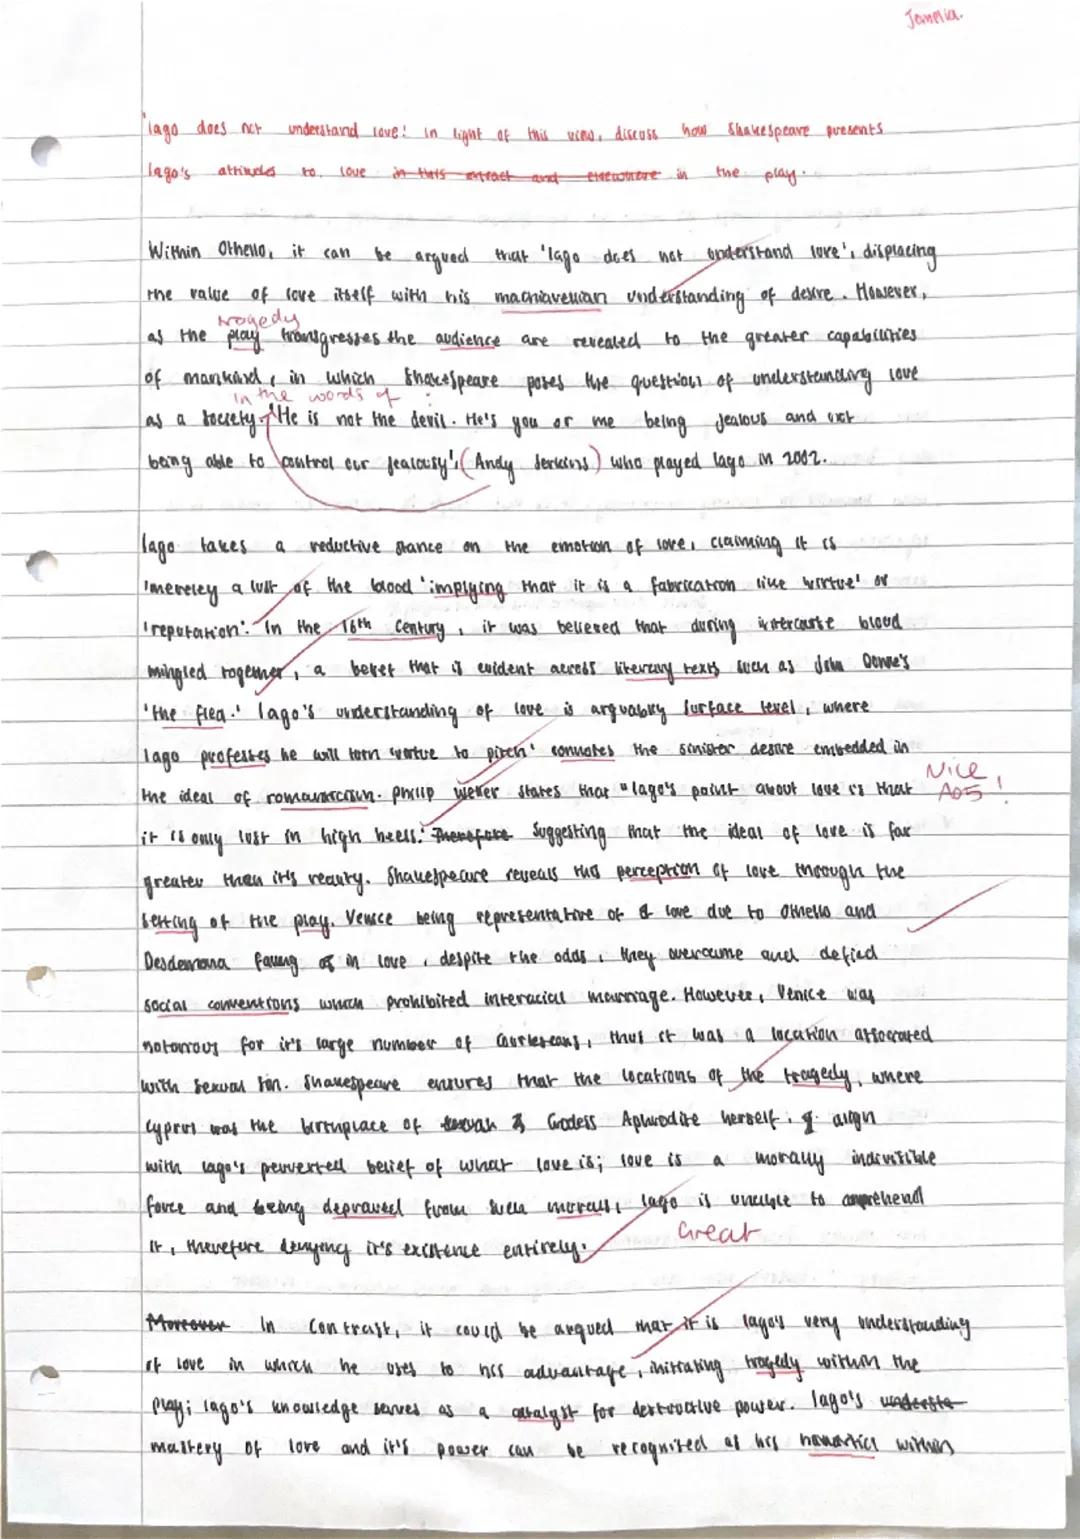 Jamelia.
'Iago does not understand love.' In light of this view, discuss how Shakespeare presents
Iago's attitudes to love in this extract and elsewhere in the play.
Within Othello, it can be argued that 'Iago does not understand love', displacing
the value of love itself with his machiavellian understanding of desire. However,
tragedy
as the play transgresses the audience are revealed to the greater capabilities
of mankind, in which Shakespeare poses the question of understanding love
in the words of :
as a society. 'He is not the devil. He's you or me being jealous and not
being able to control our jealousy', (Andy Serkins) who played Iago in 2002.
Iago takes a reductive stance on the emotion of love, claiming it is
'mereley a lust of the blood' implying that it is a fabrication like 'virtue' or
'reputation'. In the 16th Century, it was believed that during intercourse blood
mingled together, a belief that is evident across literary texts such as John Donne's
'the flea.' Iago's understanding of love is arguably surface level, where
Iago professes he will 'turn virtue to pitch' connotes the sinister desire embedded in
the ideal of romanticism. Philip Weller states that "Iago's point about love is that
Nice AO5!
it is only lust in high heels.' Therefore Suggesting that the ideal of love is far
greater than it's reality. Shakespeare reveals this perception of love through the
setting of the play. Venice being representative of love due to Othello and
Desdemona falling in love, despite the odds, they overcame and defied
social conventions which prohibited interacial marriage. However, Venice was
notorious for it's large number of courtesans, thus it was a location associated
with sexual sin. Shakespeare ensures that the locations of the tragedy, where
Cyprus was the birthplace of Godess Aphrodite herself, align
with Iago's perverted belief of what love is; love is a morally indivisible
force and being depraved from such morals, Iago is unable to comprehend
it, therefore denying it's existence entirely.
Great
Moreover In Contrast, it could be argued that it is Iago's very understanding
of love in which he uses to his advantage, initiating tragedy within the
play; Iago's knowledge serves as a catalyst for destructive power. Iago's understa
mastery of love and it's power can be recognised as his within